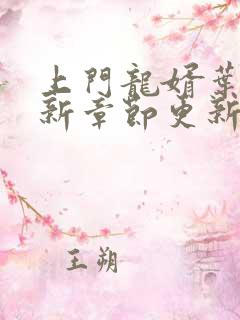 上門龍婿葉
新章節更新
王朔